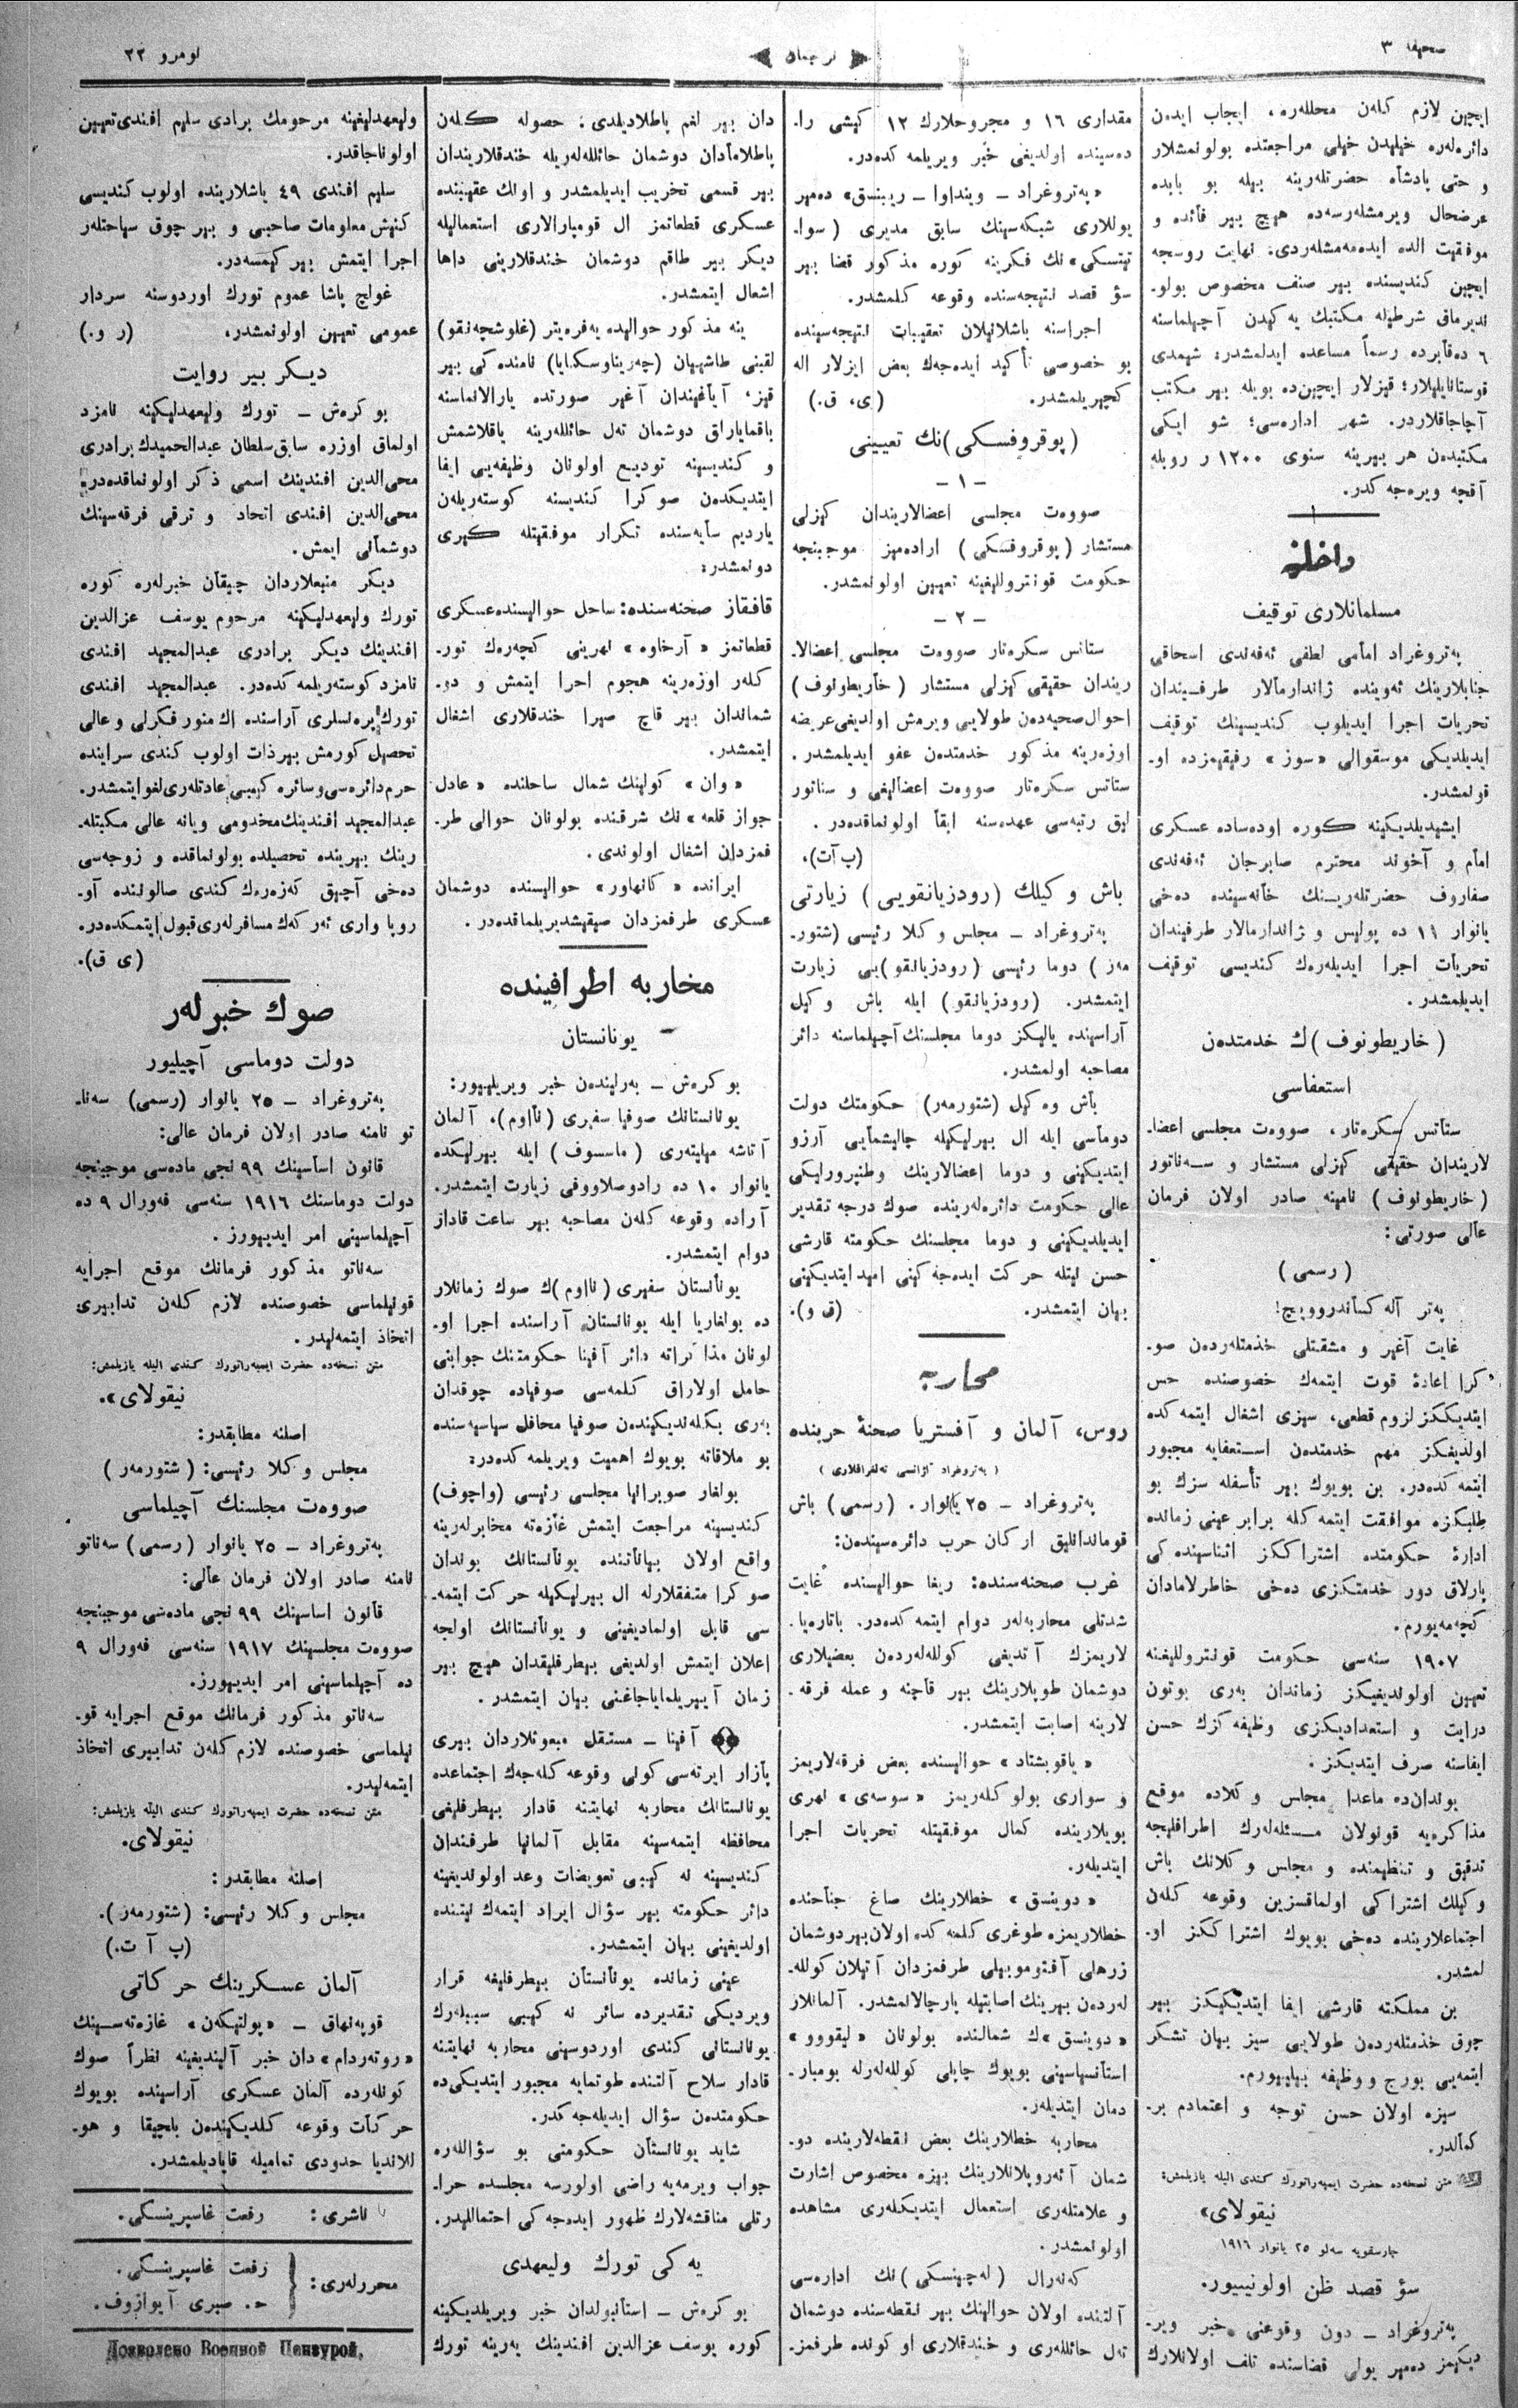 صحیفه ۳
ترجمان
نومرو ۲۲
ایچین لازم كلەن محللەرە، ایجاب ایدەن
دائرەلەرە خیلیدن خیلی مراجعتدە بولونمشلار
و حتی پادشاه حضرتلەرینە بیلە بو بابدە
عرضحال ویرمشلەرسەدە هیچ بیر فائدە و
موفقیت الدە ایدەمەمشلەردی. نهایت روسجە
ایچین كندیسندە بیر صنف مخصوص بولو-
ندیرماق شرطیلە مكتبك یەكیدن آچیلماسنە
۶ دەقابردە رسماً مساعدە ایدلمشدر: شیمدی
قوستانایلیلار؛ قیزلار ایچین‌دە بویلە بیر مكتب
آچاجاقلاردر. شهر ادارەسی؛ شو ایكی
مكتبدەن هر بیرینە سنوی ۱۲۰۰ ر روبلە
آقچە ویرەجەكدر.
داخلیه
مسلمانلاری توقیف
پەتروغراد امامی لطفی ئەفەندی اسحاقی
جنابلارینك ئەویندە ژاندارمالار طرفیندان
تحریات اجرا ایدیلوب كندیسینك توقیف
ایدیلدیكی موسقوالی «سوز» رفیقیمزدە او-
قونمشدر.
ایشیدیلدیكینە كورە اودەسادە عسكری
امام و آخوند محترم صابرجان ئەفەندی
صفاروف حضرتلەرینك خانەسیندە دەخی
یانوار ۱۱ دە پولیس و ژاندارمالار طرفیندان
تحریات اجرا ایدیلەرەك كندیسی توقیف
ایدیلمشدر.
(خاریطونوف)ك خدمتدەن
استعفاسی
ستاتس سكرەتار، صووەت مجلسی اعضا-
لاریندان حقیقی كیزلی مستشار و سەناتور
(خاریطونوف) نامینە صادر اولان فرمان
عالی صورتی:
(رسمی)
پەتر آلەكساندروویچ!
غایت آغیر و مشقتلی خدمتلەردەن صو-
كرا اعادۀ قوت ایتمەك خصوصندە حس
ایتدیككز لزوم قطعی، سیزی اشغال ایتمەكدە
اولدیغكز مهم خدمتدەن استعفایە مجبور
ایتمەكدەدر. بن بویوك بیر تأسفلە سزك بو
طلبكزە موافقت ایتمەكلە برابر عینی زماندە
ادارۀ حكومتدە اشتراككز اثناسیندەكی
پارلاق دور خدمتكزی دەخی خاطرلامادان
كچەمەیورم.
۱۹۰۷ سنەسی حكومت قونتروللیغنە
تعیین اولوندیغیكز زماندان بەری بوتون
درایت و استعدادیكزی وظیفەكزك حسن
ایفاسنە صرف ایتدیكز.
بوندان‌دە ماعدا مجلس وكلادە موقع
مذاكرەیە قونولان مسئلەلەرك اطرافلیجە
تدقیق و تنظیمندە و مجلس وكلانك باش
وكیلك اشتراكی اولماقسزین وقوعە كلەن
اجتماعلاریندە دەخی بویوك اشتراككز او-
لمشدر.
بن مملكتە قارشی ایفا ایتدیكیكز بیر
چوق خدمتلەردەن طولایی سیز بیان تشكر
ایتمەیی بورج و وظیفە بیلییورم.
سیزە اولان حسن توجە و اعتمادم بر-
كمالدر.
متن نسخەدە حضرت ایمپەراتورك كندی الیلە یازیلمش:
نیقولای»
جارسقویە سەلو ۲۵ یانوار ۱۹۱۶
سؤ قصد ظن اولونیییور.
پەتروغراد – دون وقوعنی خبر ویر-
دیكیمز دەمیر یولی قضاسندە تلف اولانلارك
مقداری ۱۶ و مجروحلارك ۱۲ كیشی را-
دەسیندە اولدیغی خبر ویریلمەكدەدر.
«پەتروغراد – وینداوا – ریبنسق» دەمیر
یوللاری شبكەسینك سابق مدیری (سوا-
تیتسكی)نك فكرینە كورە مذكور قضا بیر
سؤ قصد نتیجەسندە وقوعە كلمشدر.
اجراسنە باشلانیلان تعقیبات نتیجەسیندە
بو خصوصی تأكید ایدەجەك بعض ایزلار الە
كچیریلمشدر. (ی، ق.)
(پوقروفسكی)نك تعیینی
– ۱ –
صووەت مجلسی اعضالاریندان كیزلی
مستشار (پوقروفسكی) ارادەمیز موجبنجە
حكومت قونتروللیغینە تعیین اولونمشدر.
– ۲ –
ستاتس سكرەتار صووەت مجلسی اعضالا-
ریندان حقیقی كیزلی مستشار (خاریطونوف)
احوال صحیەدەن طولایی ویرمش اولدیغی عریضە
اوزەرینە مذكور خدمتدەن عفو ایدیلمشدر.
ستاتس سكرەتار صووەت اعضالیغی و سناتور
لیق رتبەسی عهدەسنە ابقأ اولونماقدەدر.
(پ آ ت).
باش وكیلك (رودزیانقویی) زیارتی
پەتروغراد – مجلس وكلا رئیسی (شتور-
مەر) دوما رئیسی (رودزیانقو)یی زیارت
ایتمشدر. (رودزیانقو) ایلە باش وكیل
آراسیندە یالیكز دوما مجلسنك آچیلماسنە دائر
مصاحبە اولمشدر.
باش وەكیل (شتورمەر) حكومتك دولت
دوماسی ایلە ال بیرلیكیلە چالیشمایی آرزو
ایتدیكینی و دوما اعضالارینك وطنپرورلیكی
عالی حكومت دائرەلەریندە صوك درجە تقدیر
ایدیلدیكینی و دوما مجلسنك حكومتە قارشی
حسن نیتلە حركت ایدەجەكینی امید ایتدیكینی
بیان ایتمشدر. (ق و).
محاربه
روس، آلمان و آفستریا صحنۀ حربندە
(پەتروغراد آژانسی تەلغرافلاری)
پەتروغراد – ۲۵ یانوار. (رسمی) باش
قوماندانلیق اركان حرب دائرەسیندەن:
غرب صحنەسندە: ریغا حوالیسندە غایت
شدتلی محاربەلەر دوام ایتمەكدەدر. باتارەیا-
لاریمزك آتدیغی كوللەلەردەن بعضیلاری
دوشمان طوپلارینك بیر قاچنە و عملە فرقە-
لارینە اصابت ایتمشدر.
«یاقوبشتاد» حوالیسندە بعض فرقەلاریمز
و سواری بولوكلەریمز «سوسەی» نهری
بویلاریندە كمال موفقیتلە تحریات اجرا
ایتدیلەر.
«دوینسق» خطلارینك صاغ جناحندە
خطلاریمزە طوغری كلمەكدە اولان بیر دوشمان
زرهلی آفتوموبیلی طرفمزدان آتیلان كوللە-
لەردەن بیرینك اصابتیلە پارچالانمشدر. آلمانلار
«دوینسق»ك شمالندە بولونان «لیقووو»
استانسیاسینی بویوك چاپلی كوللەلەرلە بومبار-
دمان ایتدیلەر.
محاربە خطلارینك بعض نقطەلاریندە دو-
شمان آئەروپلانلارینك بیزە مخصوص اشارت
و علامتلەری استعمال ایتدیكلەری مشاهدە
اولونمشدر.
كەنەرال (لەچیتسكی)نك ادارەسی
آلتندە اولان حوالینك بیر نقطەسندە دوشمان
تەل حائللەری و خندقلاری اوكوندە طرفمز-
دان بیر لغم پاطلادیلدی: حصولە كلەن
پاطلامادان دوشمان حائللەلەریلە خندقلاریندان
بیر قسمی تخریب ایدیلمشدر و اونك عقیبندە
عسكری قطعاتمز ال قومپارالاری استعمالیلە
دیكر بیر طاقم دوشمان خندقلارینی داها
اشغال ایتمشدر.
ینە مذكور حوالیدە یەفرەیتر (غلوشچەنقو)
لقبنی طاشییان (چەریناوسكایا) نامندەكی بیر
قیز، آیاغیندان آغیر صورتدە یارالانماسنە
باقمایاراق دوشمان تەل حائللەرینە یاقلاشمش
و كندیسینە تودیع اولونان وظیفەیی ایفا
ایتدیكدەن صوكرا كندیسنە كوستەریلەن
یاردیم سایەسندە تكرار موفقیتلە كیری
دونمشدر:
قافقاز صحنەسندە: ساحل حوالیسندە عسكری
قطعاتمز «آرخاوە» نهرینی كچەرەك تور-
كلەر اوزەرینە هجوم اجرا ایتمش و دو-
شماندان بیر قاچ صیرا خندقلاری اشغال
ایتمشدر.
«وان» كولینك شمال ساحلندە «عادل
جواز قلعە»نك شرقندە بولونان حوالی طر-
فمزدان اشغال اولوندی.
ایراندە «كانهاور» حوالیسندە دوشمان
عسكری طرفمزدان صیقیشدیریلماقدەدر.
محاربه اطرافیندە
یونانستان
بوكرەش – بەرلیندەن خبر ویریلییور:
یونانستانك صوفیا سفیری (نااوم)، آلمان
آتاشە میلیتەری (ماسسوف) ایلە بیرلیكدە
یانوار ۱۰ دە رادوصلاووفی زیارت ایتمشدر.
آرادە وقوعە كلەن مصاحبە بیر ساعت قادار
دوام ایتمشدر.
یونانستان سفیری (نااوم)ك صوك زمانلار
دە بولغاریا ایلە یونانستان آراسندە اجرا او-
لونان مذاكراتە دائر آفینا حكومتنك جوابنی
حامل اولاراق كلمەسی صوفیادە چوقدان
بەری بكلەندیكیندەن صوفیا محافل سیاسیەسندە
بو ملاقاتە بویوك اهمیت ویریلمەكدەدر:
بولغار صوبرانیا مجلسی رئیسی (واچوف)
كندیسینە مراجعت ایتمش غازەتە مخابرلەرینە
واقع اولان بیاناتندە یونانستانك بوندان
صوكرا متفقلارلە ال بیرلیكیلە حركت ایتمە-
سی قابل اولمادیغینی و یونانستانك اولجە
اعلان ایتمش اولدیغی بیطرفلیقدان هیچ بیر
زمان آیریلمایاجاغنی بیان ایتمشدر.
آفینا – مستقل مبعوثلاردان بیری
پازار ایرتەسی كونی وقوعە كلەجەك اجتماعدە
یونانستانك محاربە نهایتنە قادار بیطرفلیغی
محافظە ایتمەسینە مقابل آلمانیا طرفندان
كندیسینە نە كیبی تعویضات وعد اولوندیغینە
دائر حكومتە بیر سؤال ایراد ایتمەك نیتندە
اولدیغینی بیان ایتمشدر.
عینی زماندە یونانستان بیطرفلیغە قرار
ویردیكی تقدیردە سائر نە كیبی سببلەرك
یونانستانی كندی اوردوسینی محاربە نهایتنە
قادار سلاح آلتندە طوتمایە مجبور ایتدیكی‌دە
حكومتدەن سؤال ایدیلەجەكدر.
شاید یونانستان حكومتی بو سؤاللەرە
جواب ویرمەیە راضی اولورسە مجلسدە حرا-
رتلی مناقشەلارك ظهور ایدەجەكی احتماللیدر.
یەكی تورك ولیعهدی
بوكرەش – استانبولدان خبر ویریلدیكینە
كورە یوسف عزالدین افندینك یەرینە تورك
ولیعهدلیغینە مرحومك برادی سلیم افندی تعیین
اولوناجاقدر.
سلیم افندی ۴۹ یاشلاریندە اولوب كندیسی
كنیش معلومات صاحبی و بیر چوق سیاحتلەر
اجرا ایتمش بیر كیمسەدر.
غولچ پاشا عموم تورك اوردوسنە سردار
عمومی تعیین اولونمشدر، (ر و.)
دیكر بیر روایت
بوكرەش – تورك ولیعهدلیكینە نامزد
اولماق اوزرە سابق سلطان عبدالحمیدك برادری
محی‌الدین افندینك اسمی ذكر اولونماقدەدر.
محی‌الدین افندی اتحاد و ترقی فرقەسینك
دوشمانی ایمش.
دیكر منبعلاردان چیقان خبرلەرە كورە
تورك ولیعهدلیكینە مرحوم یوسف عزالدین
افندینك دیكر برادری عبدالمجید افندی
نامزد كوستەریلمەكدەدر. عبدالمجید افندی
تورك پرەنسلری آراسندە اك منور فكرلی و عالی
تحصیل كورمش بیر ذات اولوب كندی سرایندە
حرم دائرەسی و سائرە كیبی عادتلەری لغو ایتمشدر.
عبدالمجید افندینك مخدومی ویانە عالی مكتبلە-
رینك بیریندە تحصیلدە بولونماقدە و زوجەسی
دەخی آچیق كەزەرەك كندی صالونندە آو-
روپا واری ئەركەك مسافرلەری قبول ایتمكدەدر.
(ی ق).
صوك خبرلەر
دولت دوماسی آچیلیور
پەتروغراد – ۲۵ یانوار (رسمی) سەنا-
تو نامنە صادر اولان فرمان عالی:
قانون اساسینك ۹۹ نجی مادەسی موجبنجە
دولت دوماسنك ۱۹۱۶ سنەسی فەورال ۹ دە
آچیلماسینی امر ایدییورز.
سەناتو مذكور فرمانك موقع اجرایە
قونیلماسی خصوصندە لازم كلەن تدابیری
اتخاذ ایتمەلیدر.
متن نسخەدە حضرت ایمپەراتورك كندی الیلە یازیلمش:
نیقولای».
اصلنە مطابقدر:
مجلس وكلا رئیسی: (شتورمەر)
صووەت مجلسنك آچیلماسی
پەتروغراد – ۲۵ یانوار (رسمی) سەناتو
نامنە صادر اولان فرمان عالی:
قانون اساسینك ۹۹ نجی مادەسی موجبنجە
صووەت مجلسینك ۱۹۱۷ سنەسی فەورال ۹
دە آچیلماسینی امر ایدییورز.
سەناتو مذكور فرمانك موقع اجرایە قو-
نیلماسی خصوصندە لازم كلەن تدابیری اتخاذ
ایتمەلیدر.
متن نسخەدە حضرت ایمپەراتورك كندی الیلە یازیلمش:
نیقولای.
اصلنە مطابقدر:
مجلس وكلا رئیسی: (شتورمەر).
(پ آ ت.)
آلمان عسكرینك حركاتی
قوپەنهاق – «پولتیكەن» غازەتەسینك
«روتەردام»دان خبر آلیندیغینە نظراً صوك
كونلەردە آلمان عسكری آراسیندە بویوك
حركات وقوعە كلدیكیندەن بلچیقا و هو-
للاندیا حدودی تمامیلە قاپادیلمشدر.
ناشری: رفعت غاسپرینسكی.
محررلەری: رفعت غاسپرینسكی.
ح. صبری آیوازوف.
Дозволено Военной Цензурой.